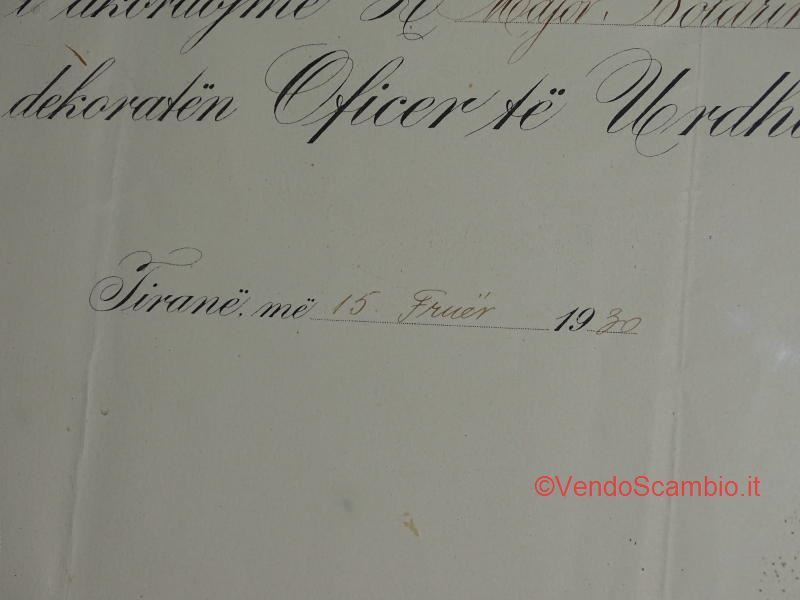 akordojmë Major.
dekoratën Oficer të Urdh
Tiranë, më 15. Fruër 1930
©VendoScambio.it